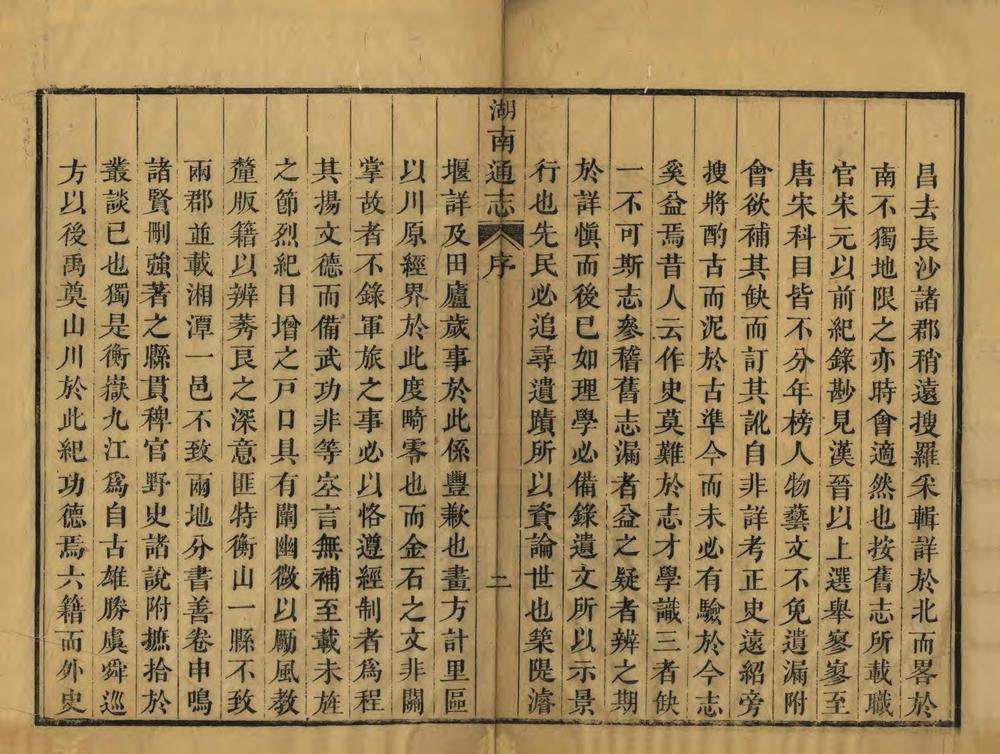 昌去長沙諸郡稍遠搜羅采輯詳於北而畧於
南不獨地限之亦時會適然也按舊志所載職
官宋元以前紀錄尠見漢晉以上選舉寥寥至
唐宋科目皆不分年榜人物藝文不免遺漏附
會欲補其缺而訂其訛自非詳考正史遠紹旁
搜將酌古而泥於古準今而未必有驗於今志
奚益焉昔人云作史莫難於志才學識三者缺
一不可斯志參稽舊志漏者益之疑者辨之期
於詳愼而後已如理學必備錄遺文所以示景
行也先民必追尋遺蹟所以資論世也築隄濬
湖南通志 序 二
堰詳及田廬歲事於此係豐歉也畫方計里區
以川原經界於此度畸零也而金石之文非關
掌故者不錄軍旅之事必以恪遵經制者爲程
其揚文德而備武功非等空言無補至載未旌
之節烈紀日增之戸口具有闡幽微以勵風教
釐版籍以辨莠良之深意匪特衡山一縣不致
兩郡並載湘潭一邑不致兩地分書善卷申鳴
諸賢刪強著之縣貫稗官野史諸說附摭拾於
叢談已也獨是衡嶽九江爲自古雄勝虞舜巡
方以後禹奠山川於此紀功德焉六籍而外史